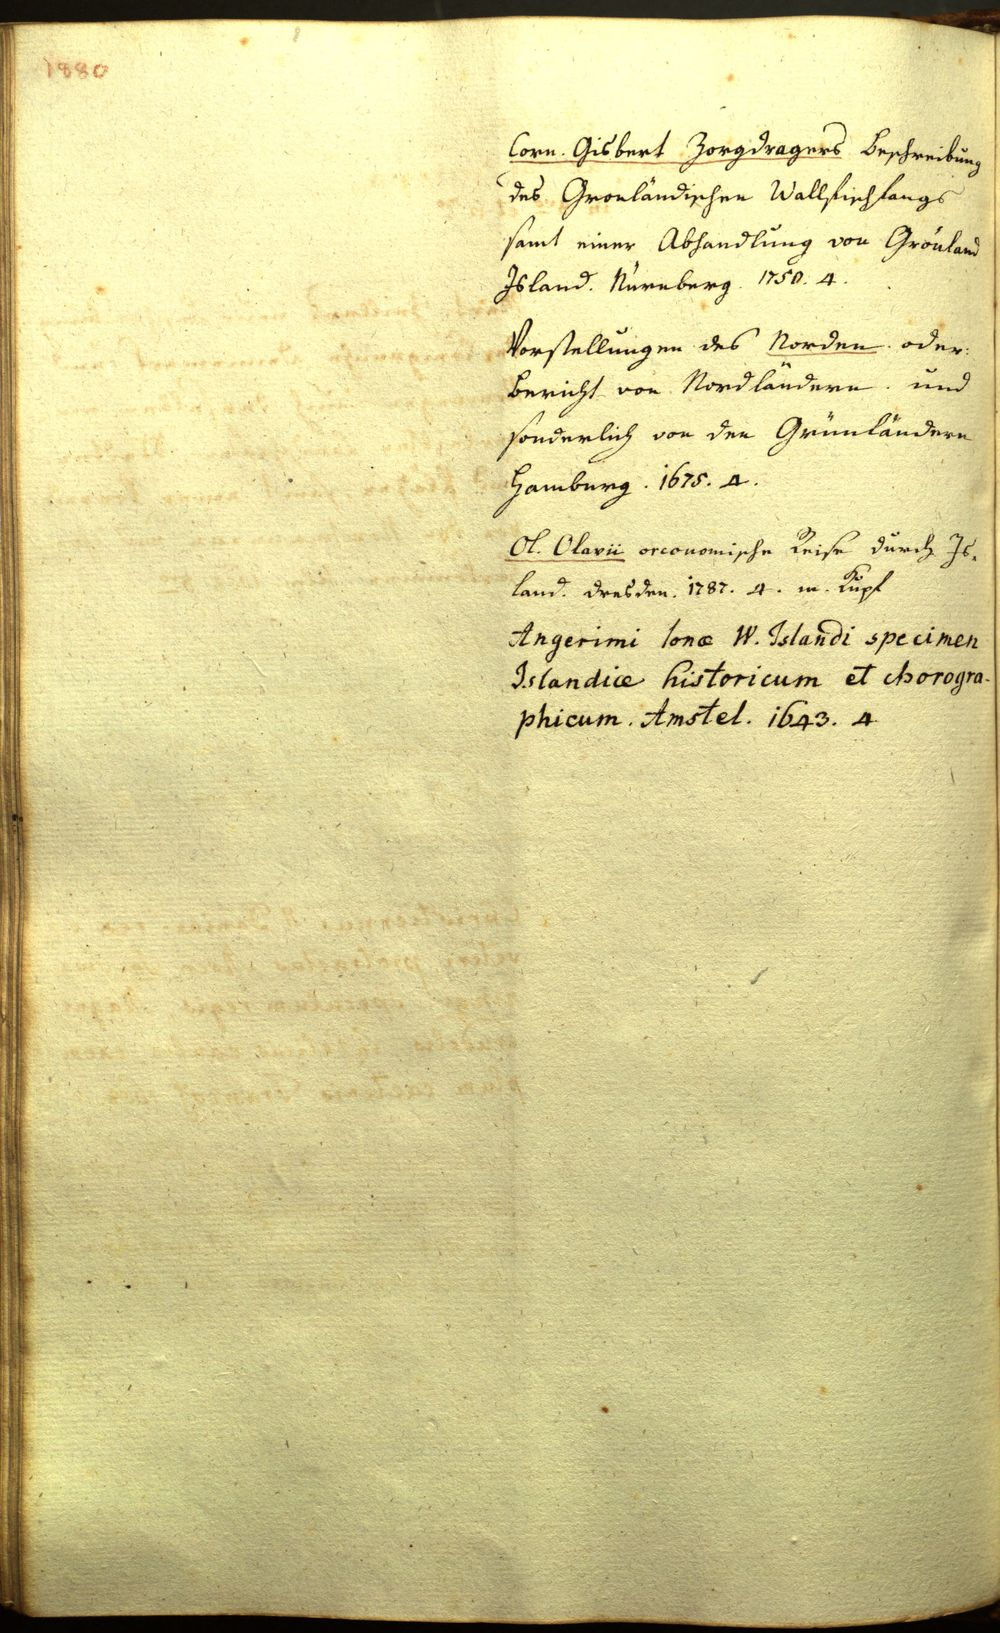 1880
Corn. Gisbert Zorgdragers Beschreibung
des Gronländischen Wallfischfangs
samt einer Abhandlung von Grönland
Island. Nürnberg. 1750. 4.
Vorstellungen des Norden. oder:
Bericht von Nordländern. und
sonderlich von den Grünländern
Hamburg. 1675. 4.
Ol. Olavii oeconomische Reise durch Is-
land. dresden. 1787. 4. m. Kupf
Angerimi Ionæ W. Islandi specimen
Islandiæ historicum et chorogra-
phicum. Amstel. 1643. 4